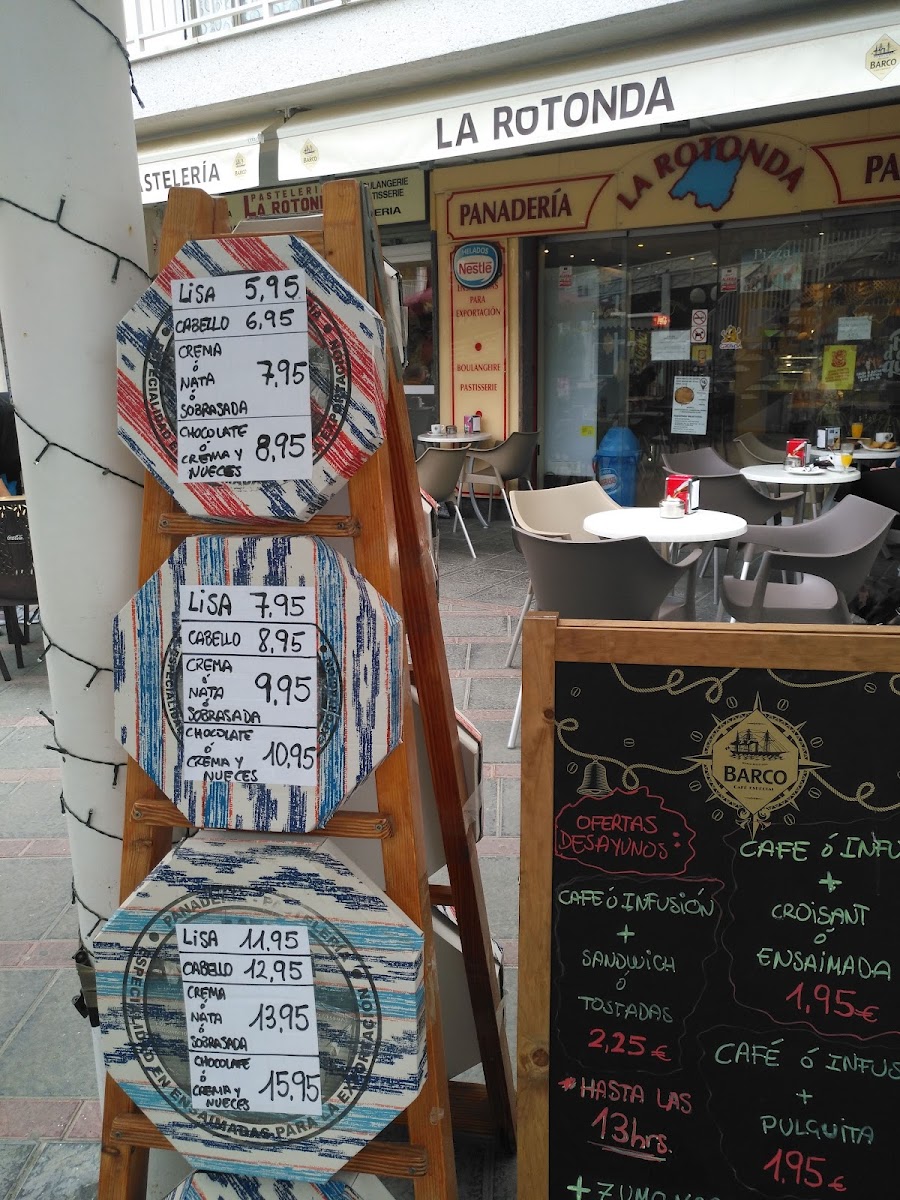 BARCO
LA ROTONDA
STELERÍA
BARCO
BARCO
PASTELERI
LA ROTON
BOULANGERIE
PANADERÍA
LA ROTONDA
PA
HELADOS
Nestlé
PARA
EXPORTACIÓN
BOULANGERIE
PASTISSERIE
Pizza
LISA 5,95
CABELLO 6,95
CREMA
ó
NATA 7,95
ó
SOBRASADA
CHOCOLATE
ó 8,95
CREMA Y
NUECES
LISA 7,95
CABELLO 8,95
CREMA
ó
NATA 9,95
ó
SOBRASADA
CHOCOLATE
ó
CREMA Y 10,95
NUECES
PANADERIA
ESPECIALIDAD EN ENSAIMADAS PARA LA EXPORTACION
LISA 11,95
CABELLO 12,95
CREMA
ó
NATA 13,95
ó
SOBRASADA
CHOCOLATE
ó
CREMA Y 15,95
NUECES
BARCO
OFERTAS
DESAYUNOS:
CAFE ó INFUSIÓN
+
SANDWICH
ó
TOSTADAS
2,25 €
* HASTA LAS
13hrs.
+ ZUMO
CAFE ó INFU
+
CROISANT
ó
ENSAIMADA
1,95 €
CAFÉ ó INFUS
+
PULGUITA
1,95 €